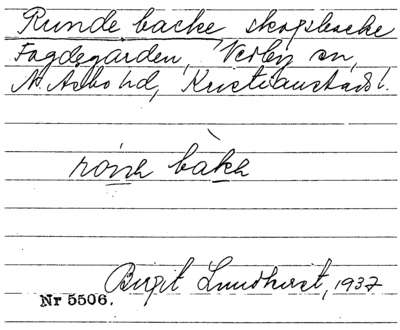 Runde backe skogsbacke
Fogdegården, Verby sn,
N. Åsbo hd, Kristianstads l.
backe
Birgit Lundkvist, 1937
Nr 5506.